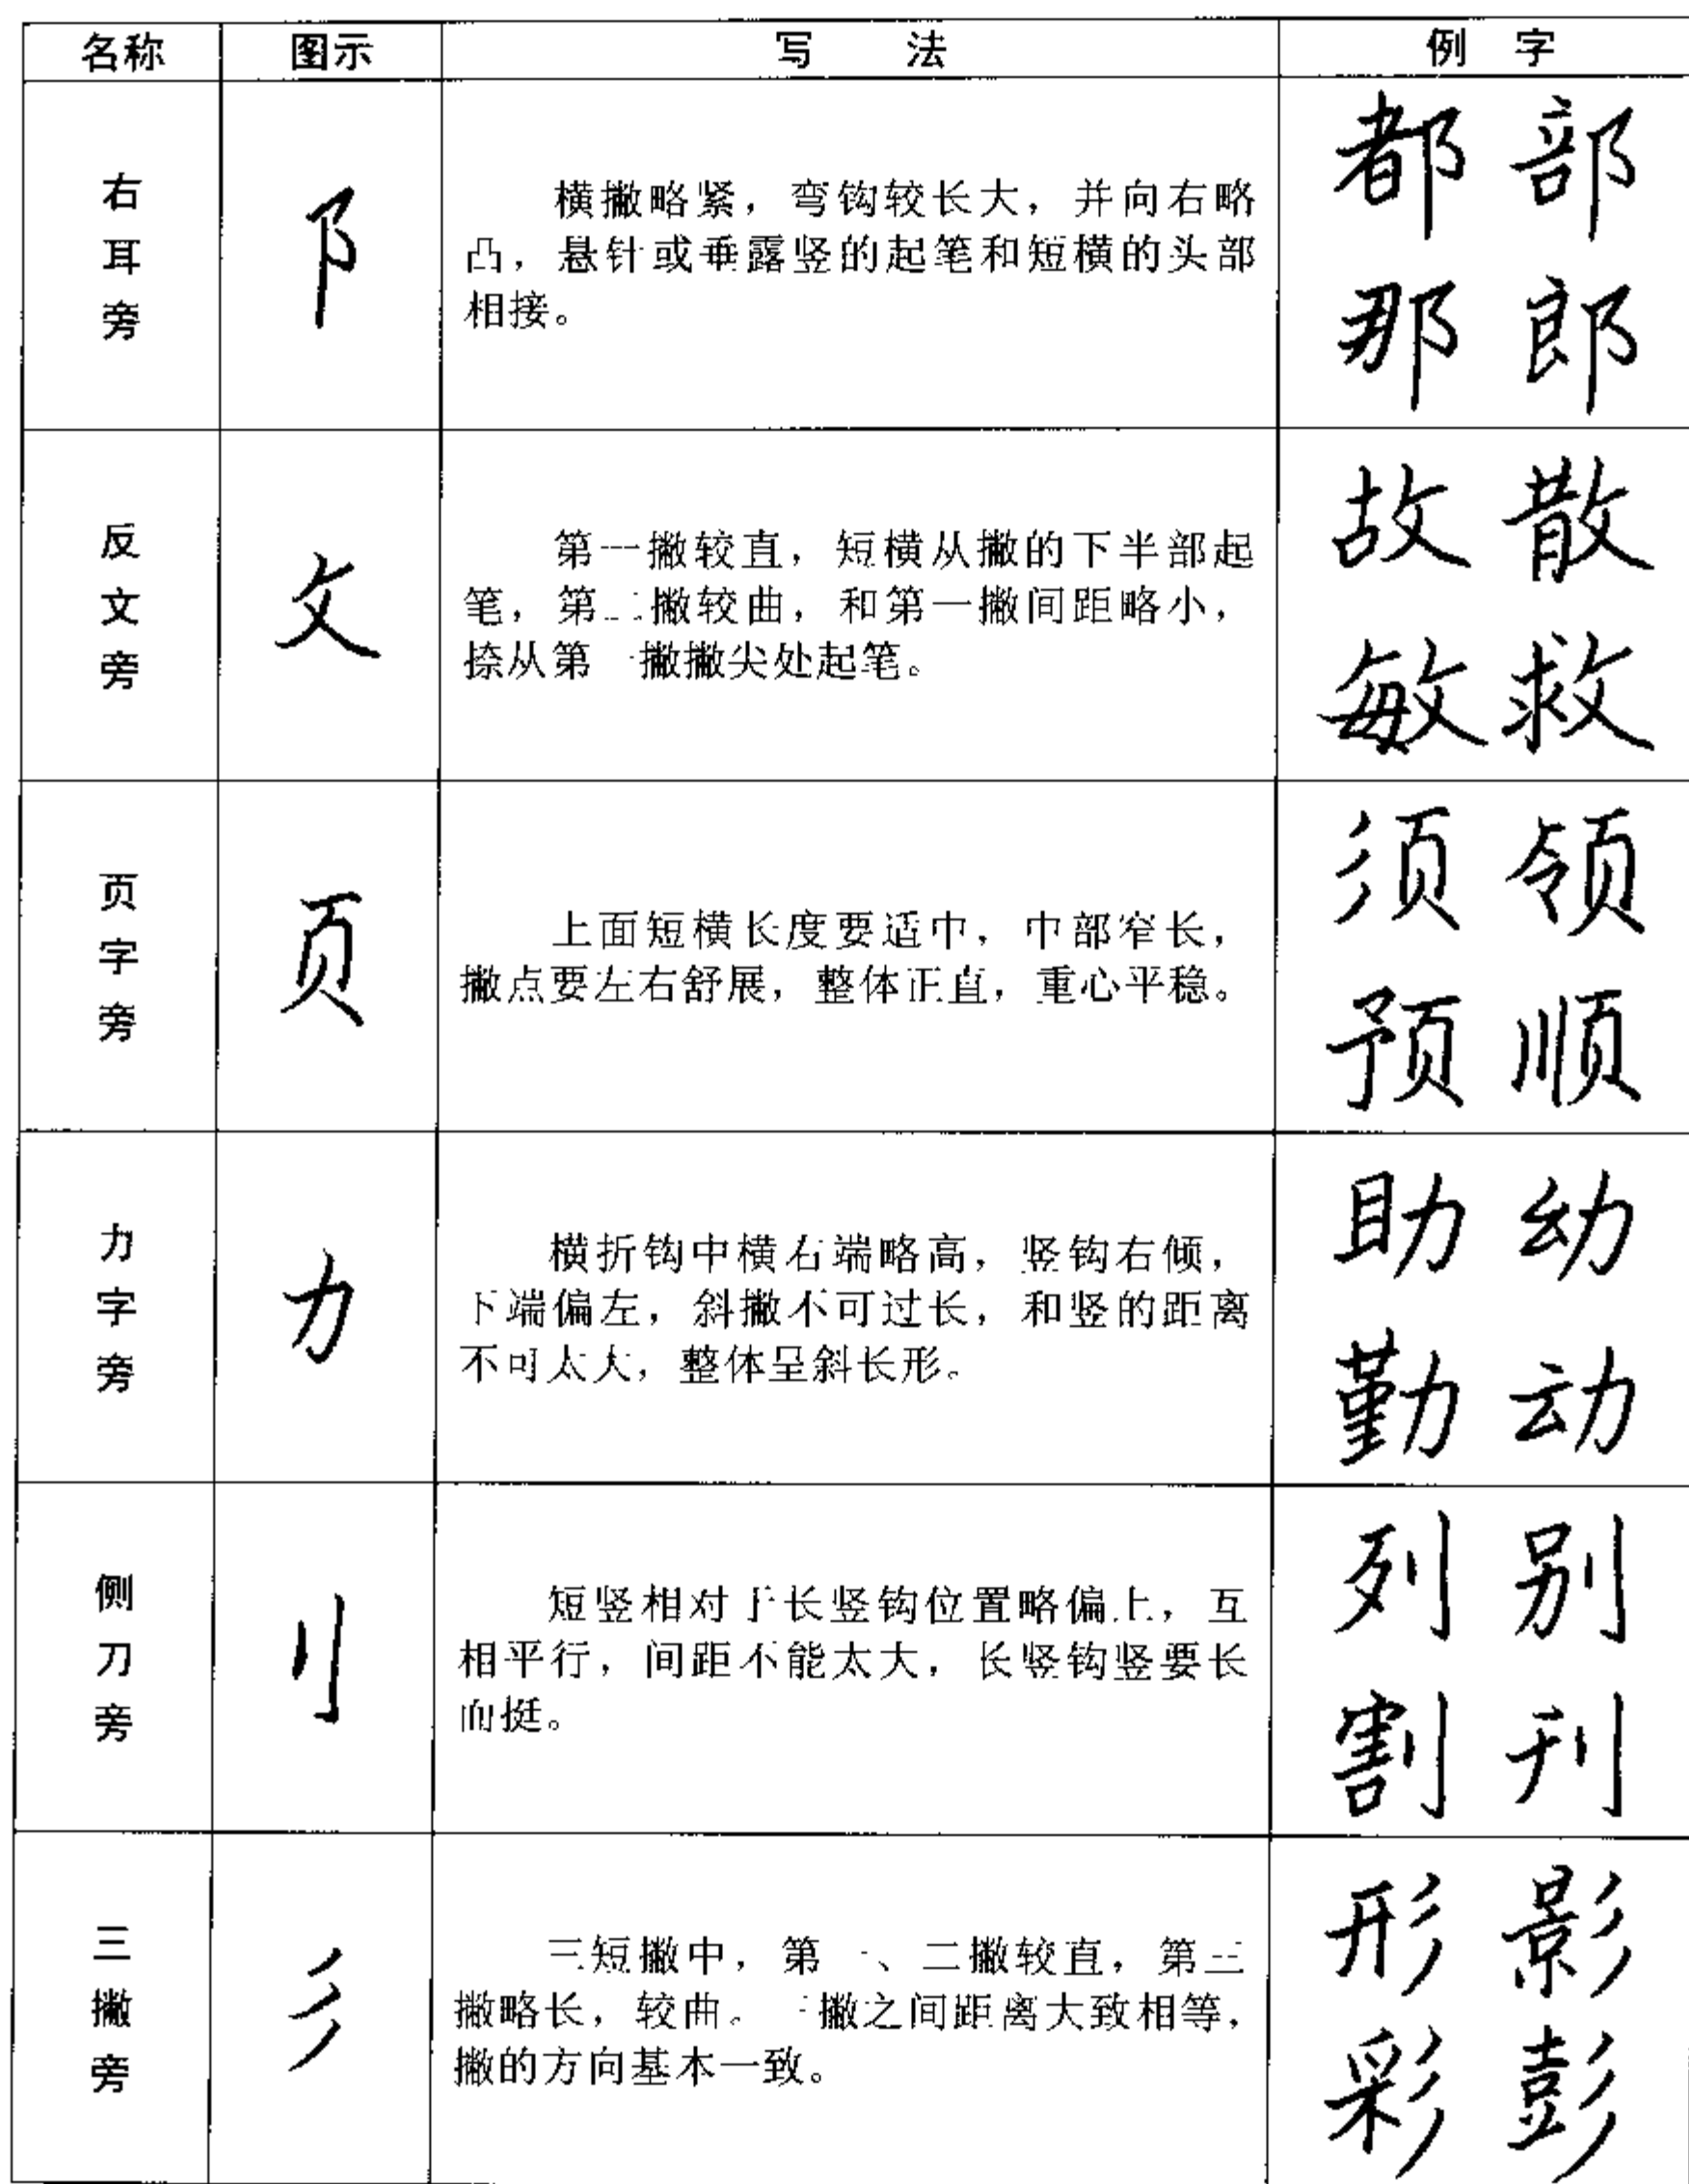 名称 图示 写 法 例 字
右耳旁 阝
横撇略紧，弯钩较长大，并向右略
凸，悬针或垂露竖的起笔和短横的头部
相接。
都 部
那 郎
反文旁 攵
第一撇较直，短横从撇的下半部起
笔，第二撇较曲，和第一撇间距略小，
捺从第一撇撇尖处起笔。
故 散
敏 救
页字旁 页
上面短横长度要适中，中部窄长，
撇点要左右舒展，整体正直，重心平稳。
须 领
预 顺
力字旁 力
横折钩中横右端略高，竖钩右倾，
下端偏左，斜撇不可过长，和竖的距离
不可太大，整体呈斜长形。
助 幼
勤 动
侧刀旁 刂
短竖相对于长竖钩位置略偏上，互
相平行，间距不能太大，长竖钩竖要长
而挺。
列 别
割 刊
三撇旁 彡
三短撇中，第一、二撇较直，第三
撇略长，较曲。三撇之间距离大致相等，
撇的方向基本一致。
形 影
彩 彭